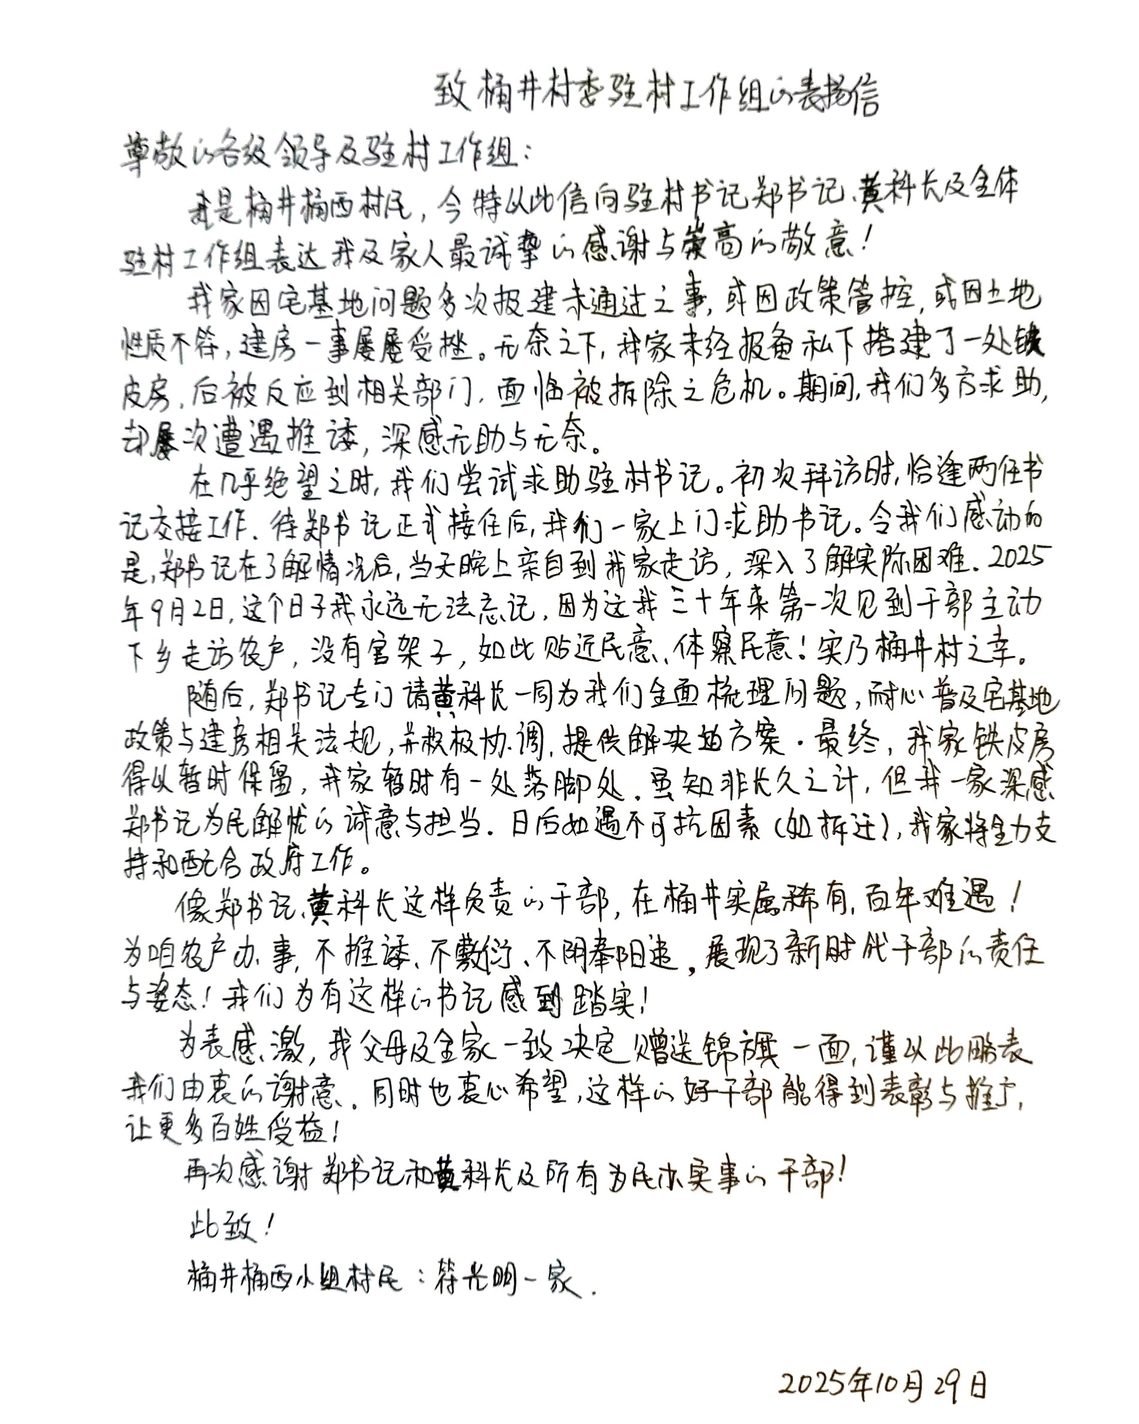 致桶井村委驻村工作组的表扬信
尊敬的各级领导及驻村工作组：
我是桶井桶西村民，今特以此信向驻村书记郑书记、黄科长及全体
驻村工作组表达我及家人最诚挚的感谢与崇高的敬意！
我家因宅基地问题多次报建未通过之事，或因政策管控，或因土地
性质不符，建房一事屡屡受挫。无奈之下，我家未经报备私下搭建了一处铁
皮房，后被反应到相关部门，面临被拆除之危机。期间，我们多方求助，
却屡次遭遇推诿，深感无助与无奈。
在几乎绝望之时，我们尝试求助驻村书记。初次拜访时，恰逢两任书
记交接工作、待郑书记正式接任后，我们一家上门求助书记。令我们感动的
是，郑书记在了解情况后，当天晚上亲自到我家走访，深入了解实际困难．2025
年9月2日，这个日子我永远无法忘记，因为这我三十年来第一次见到干部主动
下乡走访农户，没有官架子，如此贴近民意、体察民意！实乃桶井村之幸。
随后，郑书记专门请黄科长一同为我们全面梳理问题，耐心普及宅基地
政策与建房相关法规，并积极协调，提供解决的方案．最终，我家铁皮房
得以暂时保留，我家暂时有一处落脚处．虽知非长久之计，但我一家深感
郑书记为民解忧的诚意与担当．日后如遇不可抗因素（如拆迁），我家将全力支
持和配合政府工作。
像郑书记、黄科长这样负责的干部，在桶井实属稀有，百年难遇！
为咱农户办事，不推诿、不敷衍、不阴奉阳违，展现了新时代干部的责任
与姿态！我们为有这样的书记感到踏实！
为表感激，我父母及全家一致决定赠送锦旗一面，谨以此略表
我们由衷的谢意．同时也衷心希望，这样的好干部能得到表彰与推广，
让更多百姓受益！
再次感谢郑书记和黄科长及所有为民办实事的干部！
此致！
桶井桶西小组村民：符光明一家．
2025年10月29日